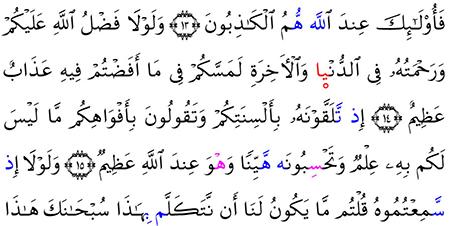 فَأُوْلَٰٓئِكَ عِندَ ٱللَّه هُّمُ ٱلْكَٰذِبُونَ ۝١٣ وَلَوْلَا فَضْلُ ٱللَّهِ عَلَيْكُمْ
وَرَحْمَتُهُۥ فِى ٱلدُّنْيا وَٱلْأَخِرَةِ لَمَسَّكُمْ فِى مَا أَفَضْتُمْ فِيهِ عَذَابٌ
عَظِيمٌ ۝١٤ إِذ تَّلَقَّوْنَهُۥ بِأَلْسِنَتِكُمْ وَتَقُولُونَ بِأَفْوَاهِكُم مَّا لَيْسَ
لَكُم بِهِۦ عِلْمٌ وَتَحْسِبُونَه هَّيِّنًا وَهْوَ عِندَ ٱللَّهِ عَظِيمٌ ۝١٥ وَلَوْلَا إِذ
سَّمِعْتُمُوهُ قُلْتُم مَّا يَكُونُ لَنَا أَن نَّتَكَلَّم بِهَٰذَا سُبْحَٰنَكَ هَٰذَا